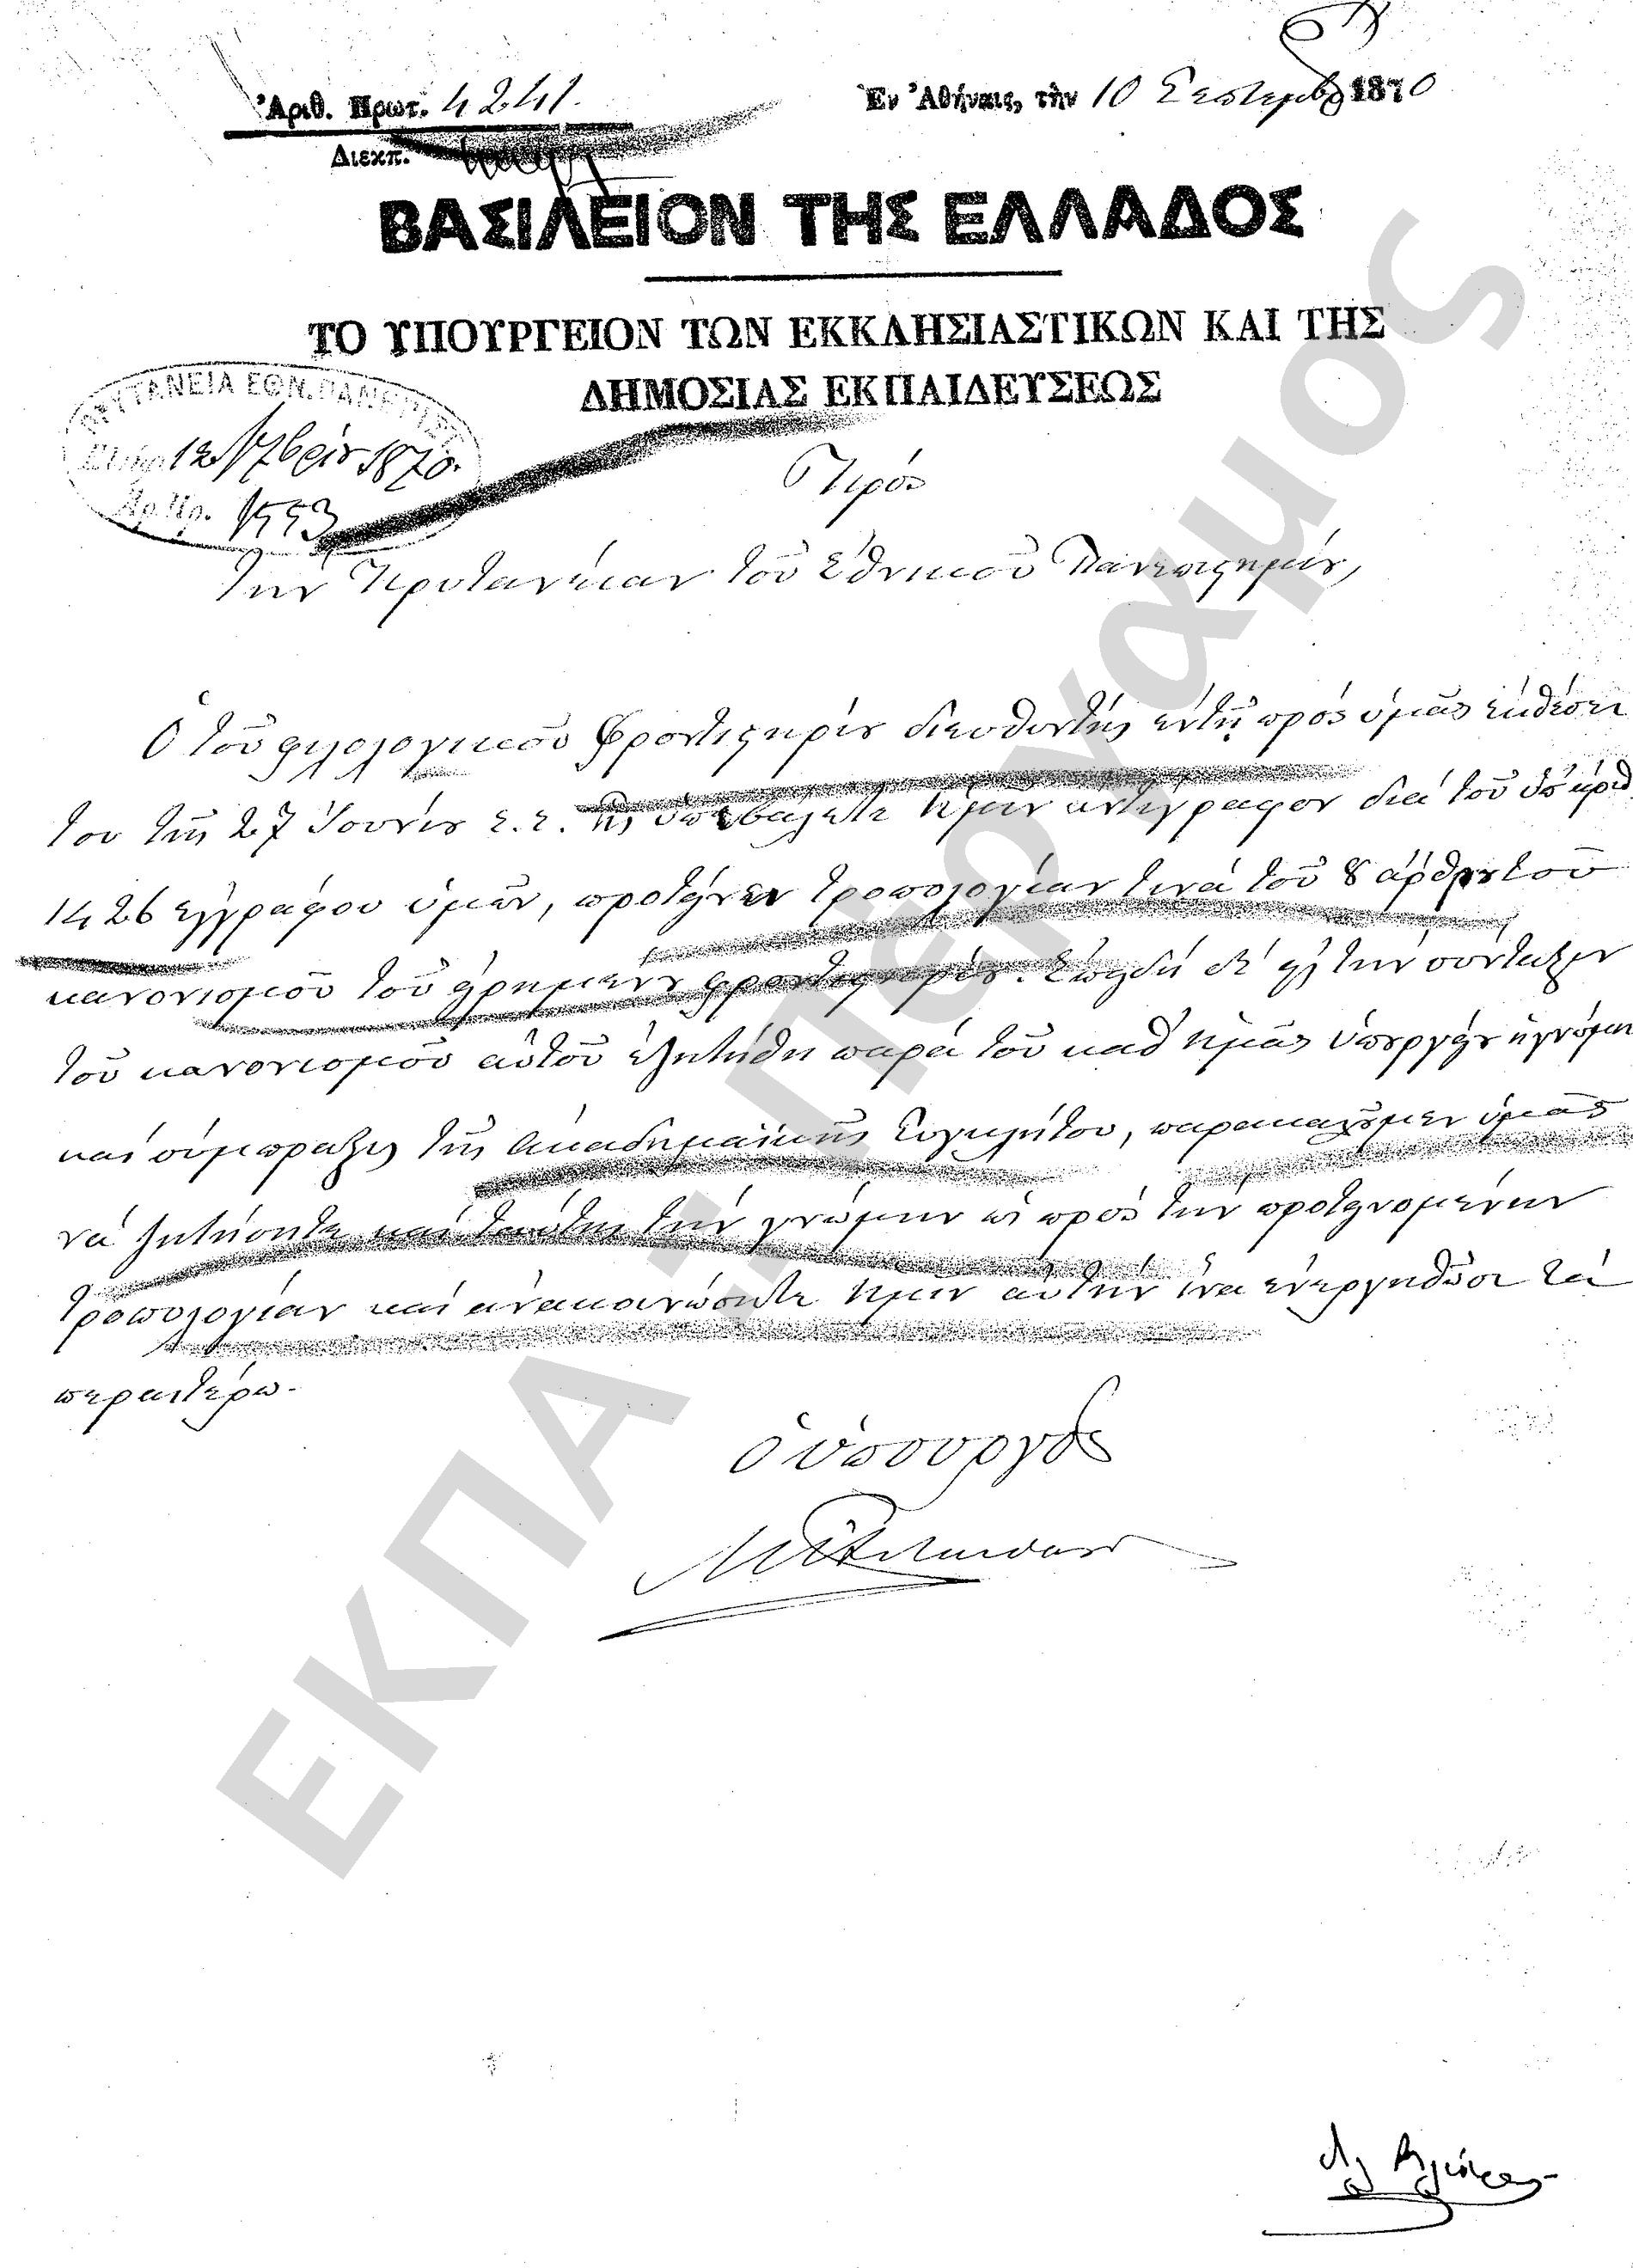 Ἀριθ. Πρωτ. 4241.
Διεκπ.
Ἐν Ἀθήναις, τὴν 10 Σεπτεμβ 1870
ΒΑΣΙΛΕΙΟΝ ΤΗΣ ΕΛΛΑΔΟΣ
ΤΟ ΥΠΟΥΡΓΕΙΟΝ ΤΩΝ ΕΚΚΛΗΣΙΑΣΤΙΚΩΝ ΚΑΙ ΤΗΣ
ΔΗΜΟΣΙΑΣ ΕΚΠΑΙΔΕΥΣΕΩΣ
ΠΡΥΤΑΝΕΙΑ ΕΘΝ. ΠΑΝΕΠΙΣΤ
12 7βρίου 1870.
Αρ. Πρ. 1553
Πρὸς
τὴν Πρυτανείαν τοῦ Ἐθνικοῦ Πανεπιστημίου,
Ὁ τοῦ φιλολογικοῦ Φροντιστηρίου διευθυντὴς ἐν τῇ πρὸς ὑμᾶς ἐκθέσει
του τῆς 27 Ἰουνίου ἐ.ἔ. ἧς ὑπεβάλετε ἡμῖν ἀντίγραφον διὰ τοῦ ὑπ' ἀριθ.
1426 ἐγγράφου ὑμῶν, προτείνει τροπολογίαν τινὰ τοῦ 8 ἄρθρου τοῦ
κανονισμοῦ τοῦ εἰρημένου φροντιστηρίου. Ἐπειδὴ δ' εἰς τὴν σύνταξιν
τοῦ κανονισμοῦ αὐτοῦ ἐζητήθη παρὰ τοῦ καθ' ἡμᾶς ὑπουργείου ἡ γνώμη
καὶ σύμπραξις τῆς Ἀκαδημαϊκῆς Συγκλήτου, παρακαλοῦμεν ὑμᾶς
νὰ ζητήσητε καὶ ταύτης τὴν γνώμην ὡς πρὸς τὴν προτεινομένην
τροπολογίαν καὶ ἀνακοινώσητε ἡμῖν αὐτὴν ἵνα ἐνεργηθῶσι τὰ
περαιτέρω.
Ὁ ὑπουργὸς
ΕΚΠΑ - Πέργαμος